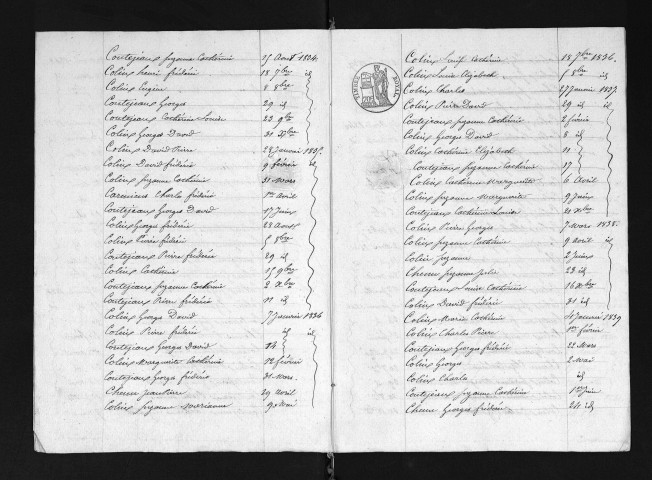 Coutejeaux Suzanne Cathérine 25 Aout 1834
Colin henri frédéric 18 7bre id
Colin Eugene 8 8bre
Coutejeaux Georges 29 id
Coutejeaux Cathérine Louise 23 9bre
Colin Georges David 31 Xbre
Colin David Pierre 28 Janvier 1835
Colin David frédéric 9 février id
Colin Suzanne Cathérine 31 Mars
Charles frédéric 1er Avril
Coutejeaux Georges David 17 Juin
Colin George frédéric 28 Aout
Colin Pierre frédéric 5 8bre
Coutejeaux Pierre frédéric 29 id
Colin Cathérine 15 9bre
Coutejeaux Suzanne Cathérine 2 Xbre
Coutejeaux Pierre frédéric 11 id
Colin Georges David 7 Janvier 1836
Colin Pierre frédéric id id
Coutejeaux Georges David 14
Colin Marguerite Cathérine 12 février
Coutejeaux George frédéric 31 Mars
Cheme 29 Avril
Colin Suzanne Marianne 9 Mai
TIMBRE ROYAL
Colin Cathérine 18 7bre 1836
Colin Louise Elizabeth 5 8bre id
Colin Charles 27 Janvier 1837
Colin Pierre David 29 id id
Coutejeaux Suzanne Cathérine 2 février
Colin Georges David 8 id
Colin Cathérine Elizabeth 11
Coutejeaux Suzanne Cathérine 17
Colin Cathérine Marguerite 6 Avril
Colin Suzanne Marguerite 9 Juin
Coutejeaux Cathérine Louise 21 Xbre
Colin Pierre George 7 Mars 1838
Colin Suzanne Cathérine 9 Avril id
Colin Suzanne 2 Juin
Cheme Suzanne Julie 23 id
Coutejeaux Louise Cathérine 16 Xbre
Colin David frédéric 31 id
Colin Marie Cathérine Janvier 1839
Colin Charles Pierre 1er février
Coutejeaux George frédéric 22 Mars
Colin George 2 Mai
Colin Charles id
Coutejeaux Suzanne Cathérine 1er Juin
Cheme Georges frédéric 24 id